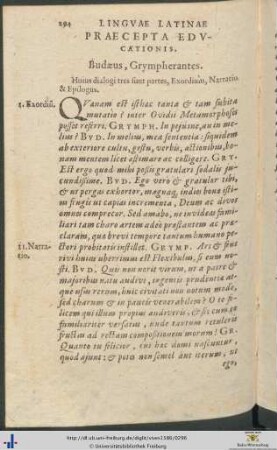 194 LINGVAE LATINAE
PRAECEPTA EDV-
CATIONIS.
Budæus, Grympherantes.
Huius dialogi tres sunt partes, Exordium, Narratio
& Epilogus.
1. Exordiū. QVænam est isthæc tanta & tam subita
mutatio? inter Ovidij Metamorphoseis
possit referri. GRYMPH. In peiúsne, an in me-
lius? BVD. In melius, mea sententia: siquidem
ab exteriore cultu, gestu, verbis, actionibus, ho-
num mentem licet æstimare ac colligere. GRY.
Est ergo quod mihi possis gratulari sodalis ju-
cundissime. BVD. Ego verò & gratulor tibi,
& ut pergas exhortor, magnaq; indies bonæ isti-
us frugis ut capias incrementa, Deum ac divos
omnes comprecor. Sed amabo, ne invideas fami-
liari tam charo artem adeò præstantem ac præ-
claram, quæ brevi tempore tantum humano pe-
11. Narra-
tio. ctori probitatis instillet. GRYMP. Ars & fons
rivi huius uberrimus est Flexibulus, si eum no-
sti. BVD. Quis non norit virum, ut a patre &
majoribus natu audivi, ingentis prudentiæ at-
que usus rerum, huic civitati non notum modò,
sed charum & in paucis venerabilem? O te fi-
licem qui illum propius audiveris, & sis cum eo
familiariter versatus, unde tantum retuleris
fructum ad rectam compositionem morum? GR.
Quanto tu felicior, cui hoc domi nascitur,
quod ajunt: & patri non semel aut iterum, ut
ego,
http://dl.ub.uni-freiburg.de/diglit/vives1588/0206
© Universitätsbibliothek Freiburg
Baden-Württemberg